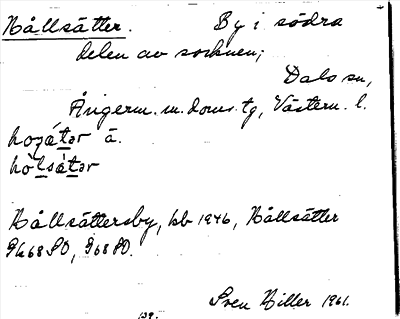 Hållsätter. By i södra
delen av socknen;
Dals sn,
Ångerm. m. doms. tg, Västern. l.
hozátər ā.
hòlsátər
Hållsättersby, kb 1946, Hållsätter
Gk 68 SO, G 68 SO.
Sven Hiller 1961.
139.